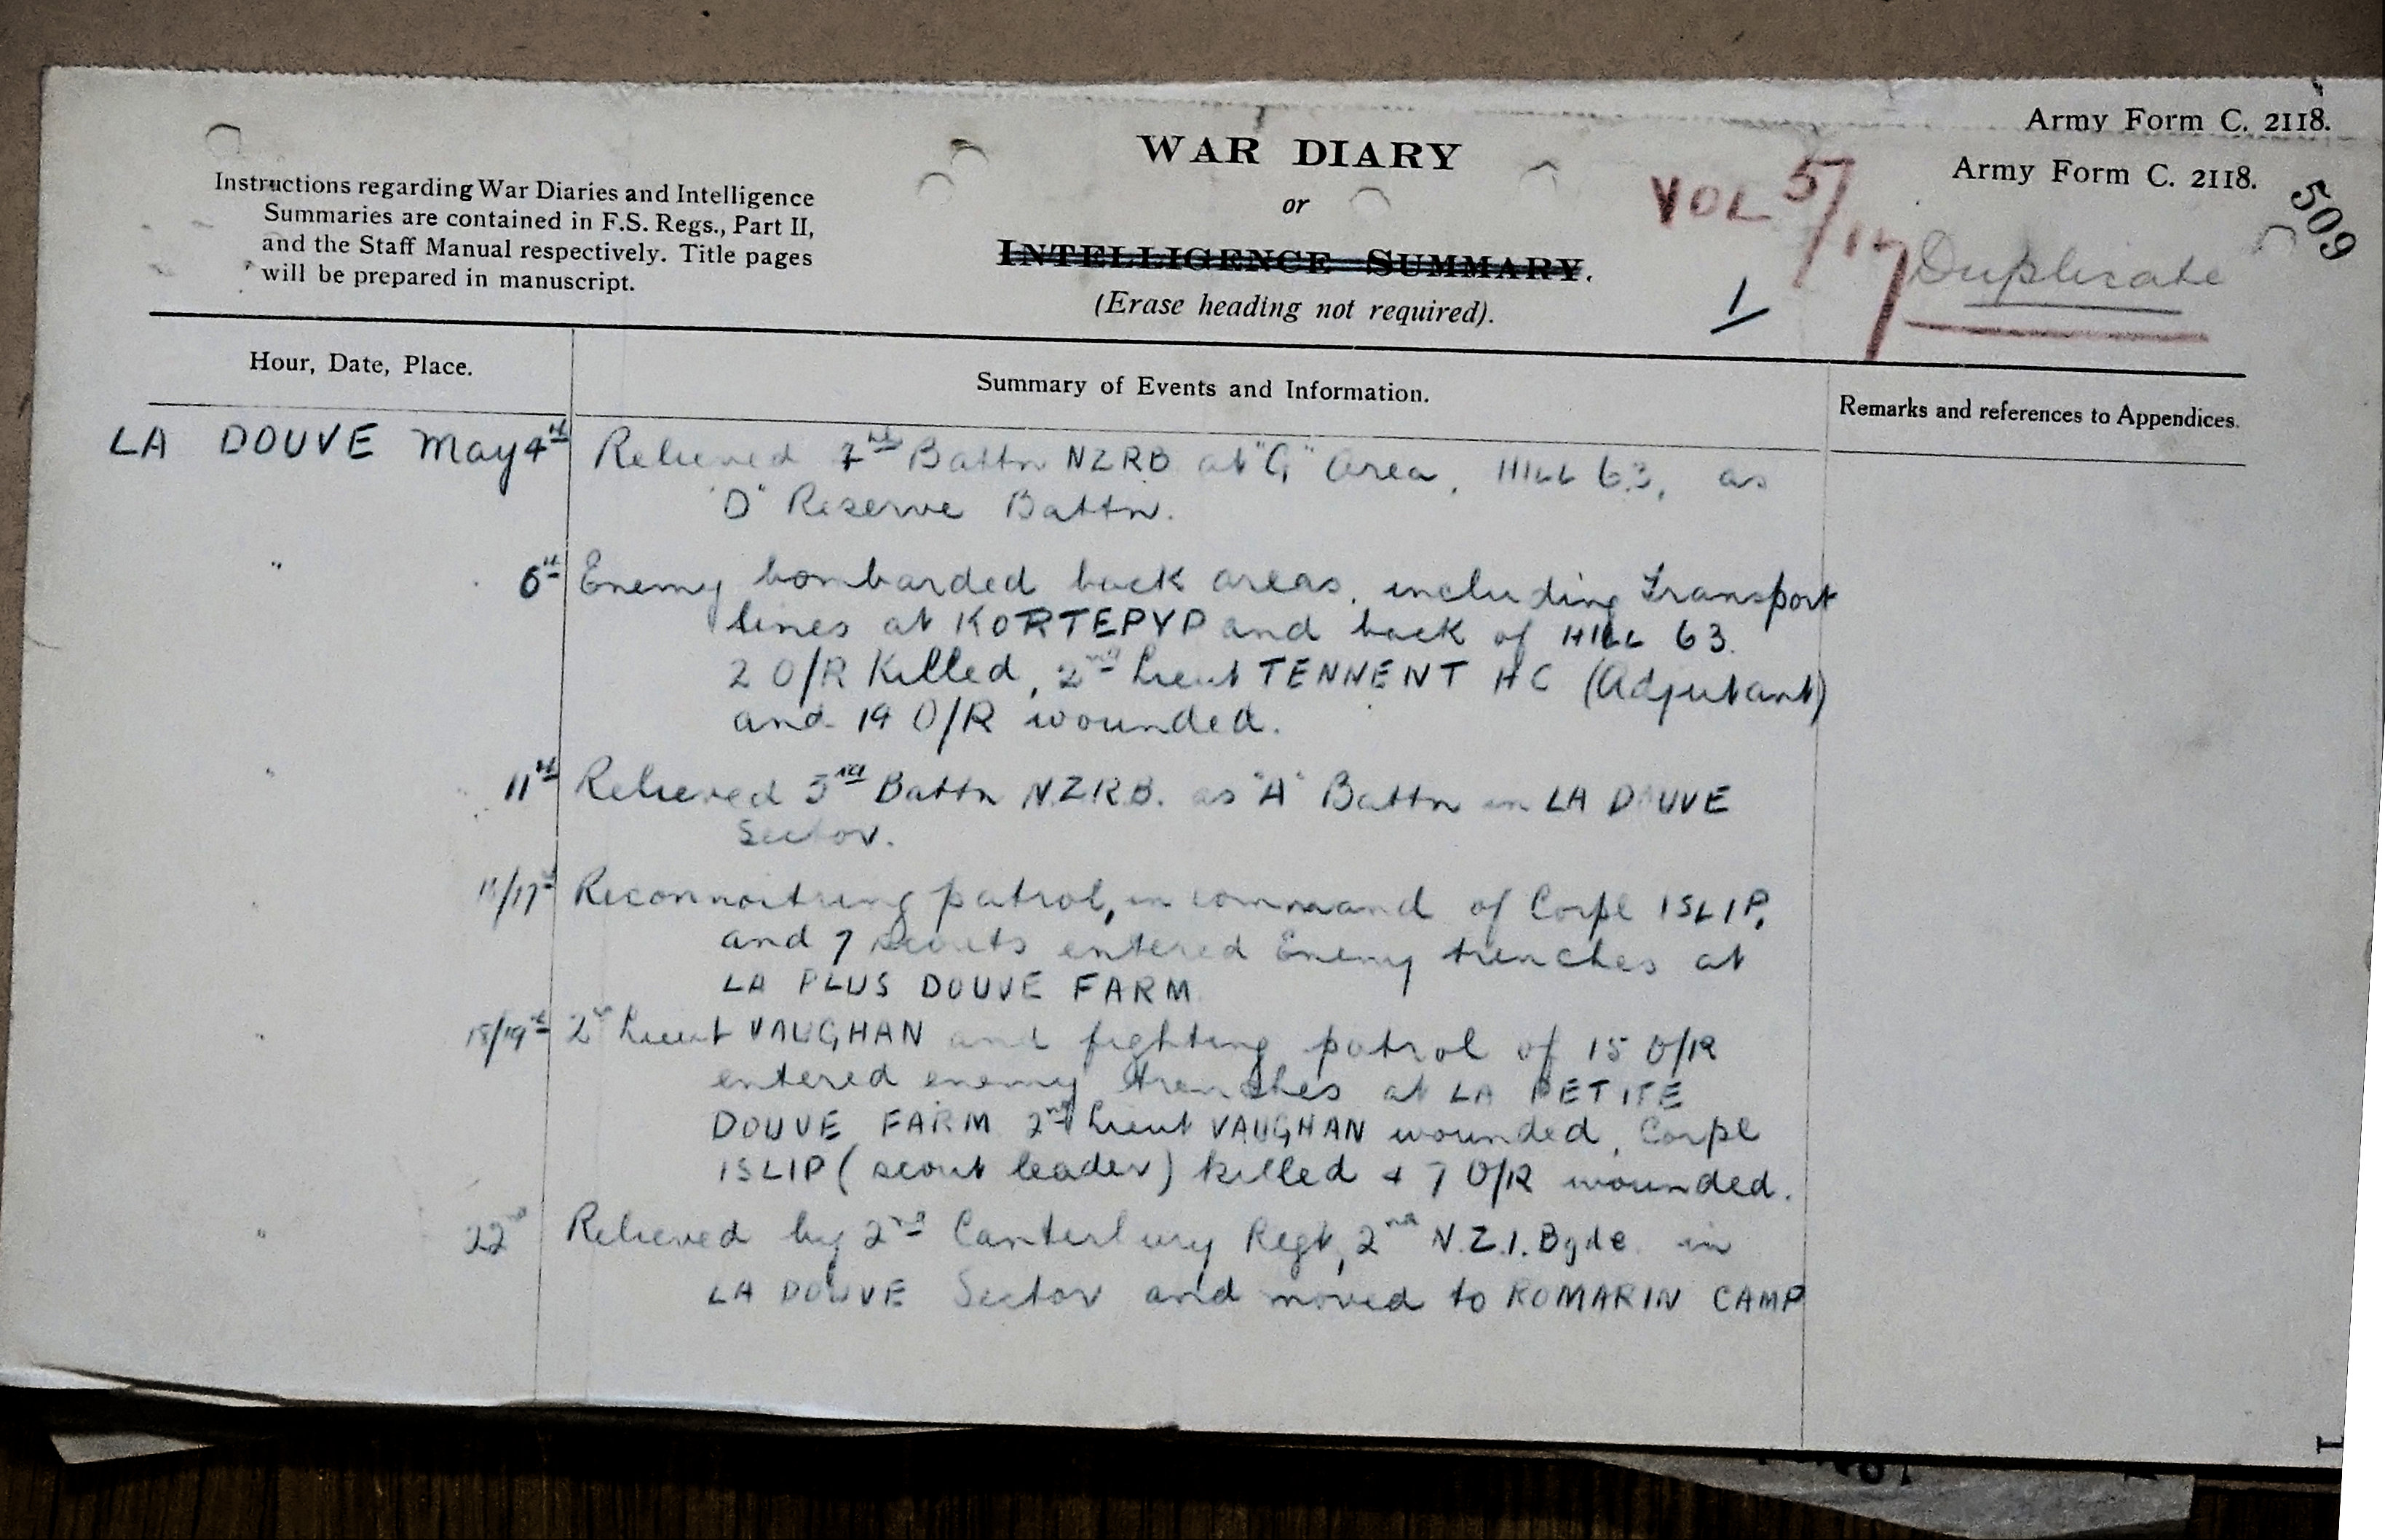 Army Form C. 2118.
Army Form C. 2118.
509
WAR DIARY
or
INTELLIGENCE SUMMARY.
(Erase heading not required).
Instructions regarding War Diaries and Intelligence
Summaries are contained in F.S. Regs., Part II,
and the Staff Manual respectively. Title pages
will be prepared in manuscript.
VOL 5/17
Duplicate
1
Hour, Date, Place.
Summary of Events and Information.
Remarks and references to Appendices.
LA DOUVE May 4th Relieved Battn NZRB at "G" Area, HILL 63, as
"D" Reserve Battn.
" 6th Enemy bombarded back areas, including Transport
lines at KORTEPYP and back of HILL 63.
2 O/R Killed, 2nd Lieut TENNENT HC (Adjutant)
and 19 O/R wounded.
" 11th Relieved 3rd Battn N.Z.R.B. as "A" Battn in LA DOUVE
Sector.
" /17th Reconnoitring patrol, in command of Corpl ISLIP,
and 7 scouts entered Enemy trenches at
LA PLUS DOUVE FARM
" 18/19th 2nd Lieut VAUGHAN and fighting patrol of 15 O/R
entered enemy trenches at LA PETITE
DOUVE FARM 2nd Lieut VAUGHAN wounded, Corpl
ISLIP (scout leader) killed + 7 O/R wounded.
" 22nd Relieved by 2nd Canterbury Regt, 2nd N.Z.I. Bgde in
LA DOUVE Sector and moved to ROMARIN CAMP